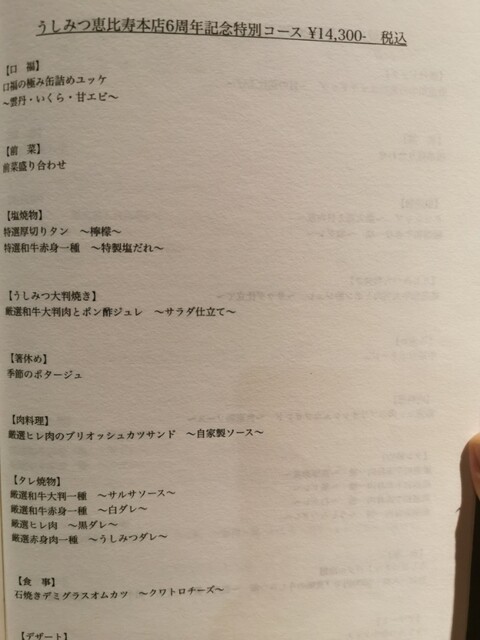 うしみつ恵比寿本店6周年記念特別コース ¥14,300-　税込
【口　福】
口福の極み缶詰めユッケ
～雲丹・いくら・甘エビ～
【前　菜】
前菜盛り合わせ
【塩焼物】
特選厚切りタン　～檸檬～
特選和牛赤身一種　～特製塩だれ～
【うしみつ大判焼き】
厳選和牛大判肉とポン酢ジュレ　～サラダ仕立て～
【箸休め】
季節のポタージュ
【肉料理】
厳選ヒレ肉のブリオッシュカツサンド　～自家製ソース～
【タレ焼物】
厳選和牛大判一種　～サルサソース～
厳選和牛赤身一種　～白ダレ～
厳選ヒレ肉　～黒ダレ～
厳選赤身肉一種　～うしみつダレ～
【食　事】
石焼きデミグラスオムカツ　～クワトロチーズ～
【デザート】